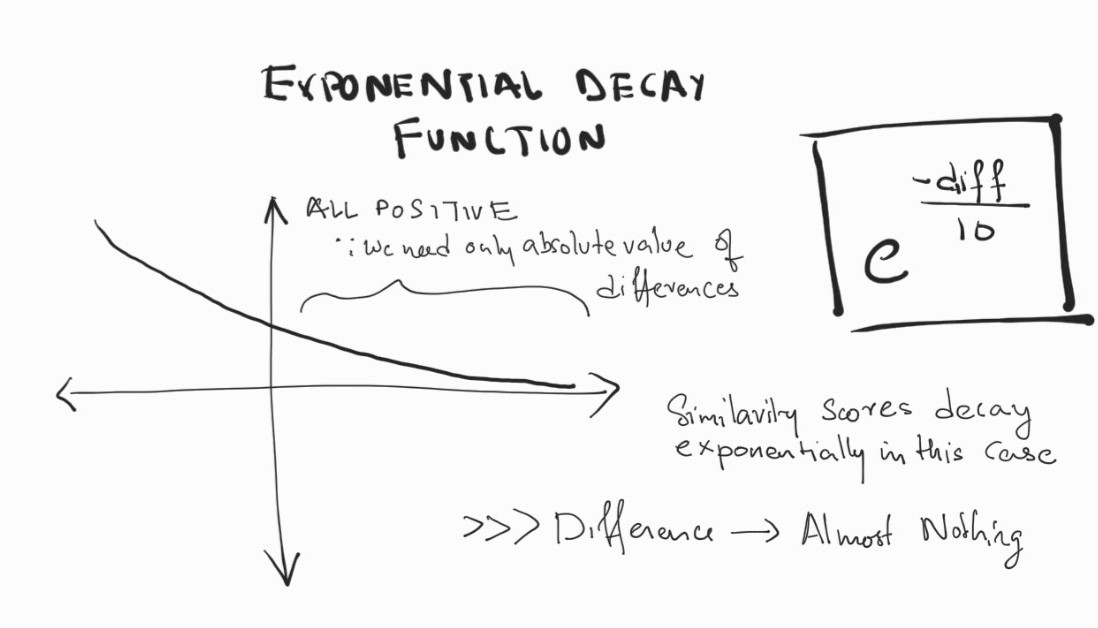 EXPONENTIAL DECAY
FUNCTION
ALL POSITIVE
∵ we need only absolute value of
differences
e^(-diff/10)
Similarity scores decay
exponentially in this case
>>> Difference → Almost Nothing